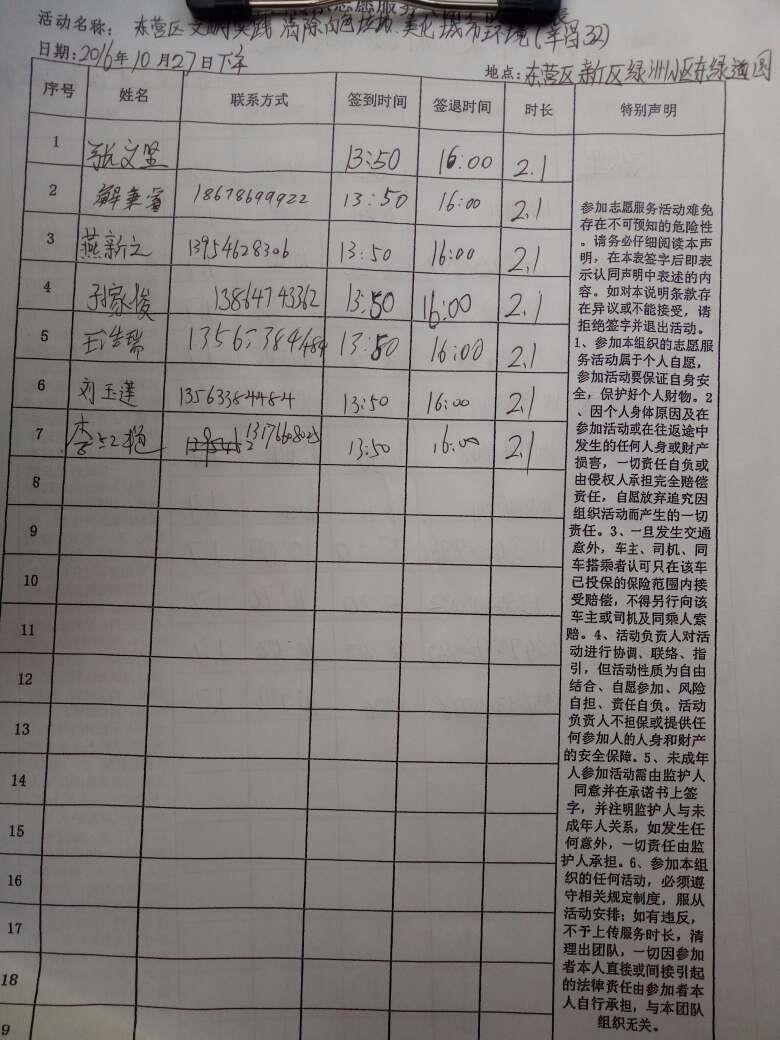 活动名称: 东营区文明实践 清除白色垃圾 美化城市环境(辛留32)
日期:2016年10月27日下午
地点:东营区新区绿洲小区东绿道园
序号 姓名 联系方式 签到时间 签退时间 时长 特别声明
1 张文坚 13:50 16:00 2.1
2 18678699922 13:50 16:00 2.1
3 燕新之 13954628306 13:50 16:00 2.1
4 孙家俊 13864743362 13:50 16:00 2.1
5 王浩瑞 13:50 16:00 2.1
6 刘玉莲 13563384484 13:50 16:00 2.1
7 李红艳 13176608025 13:50 16:00 2.1
8
9
10
11
12
13
14
15
16
17
18
9
参加志愿服务活动难免
存在不可预知的危险性
。请务必仔细阅读本声
明，在本表签字后即表
示认同声明中表述的内
容。如对本说明条款存
在异议或不能接受，请
拒绝签字并退出活动。
1、参加本组织的志愿服
务活动属于个人自愿，
参加活动要保证自身安
全，保护好个人财物。2
、因个人身体原因及在
参加活动或在往返途中
发生的任何人身或财产
损害，一切责任自负或
由侵权人承担完全赔偿
责任，自愿放弃追究因
组织活动而产生的一切
责任。3、一旦发生交通
意外，车主、司机、同
车搭乘者认可只在该车
已投保的保险范围内接
受赔偿，不得另行向该
车主或司机及同乘人索
赔。4、活动负责人对活
动进行协调、联络、指
引，但活动性质为自由
结合、自愿参加、风险
自担、责任自负。活动
负责人不担保或提供任
何参加人的人身和财产
的安全保障。5、未成年
人参加活动需由监护人
同意并在承诺书上签
字，并注明监护人与未
成年人关系，如发生任
何意外，一切责任由监
护人承担。6、参加本组
织的任何活动，必须遵
守相关规定制度，服从
活动安排；如有违反，
不予上传服务时长，清
理出团队，一切因参加
者本人直接或间接引起
的法律责任由参加者本
人自行承担，与本团队
组织无关。